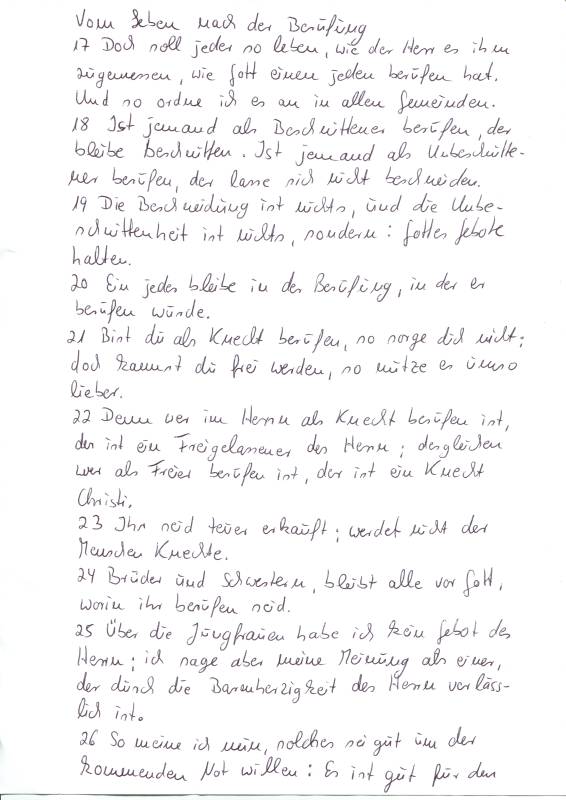 Vom Leben nach der Berufung
17 Doch soll jeder so leben, wie der Herr es ihm
zugemessen, wie Gott einen jeden berufen hat.
Und so ordne ich es an in allen Gemeinden.
18 Ist jemand als Beschnittener berufen, der
bleibe beschnitten. Ist jemand als Unbeschnitte-
ner berufen, der lasse sich nicht beschneiden.
19 Die Beschneidung ist nichts, und die Unbe-
schnittenheit ist nichts, sondern: Gottes Gebote
halten.
20 Ein jeder bleibe in der Berufung, in der er
berufen wurde.
21 Bist du als Knecht berufen, so sorge dich nicht;
doch kannst du frei werden, so nutze es umso
lieber.
22 Denn wer im Herrn als Knecht berufen ist,
der ist ein Freigelassener des Herrn; desgleichen
wer als Freier berufen ist, der ist ein Knecht
Christi.
23 Ihr seid teuer erkauft; werdet nicht der
Menschen Knechte.
24 Brüder und Schwestern, bleibt alle vor Gott,
worin ihr berufen seid.
25 Über die Jungfrauen habe ich kein Gebot des
Herrn; ich sage aber meine Meinung als einer,
der durch die Barmherzigkeit des Herrn verläss-
lich ist.
26 So meine ich nun, solches sei gut um der
kommenden Not willen: Es ist gut für den